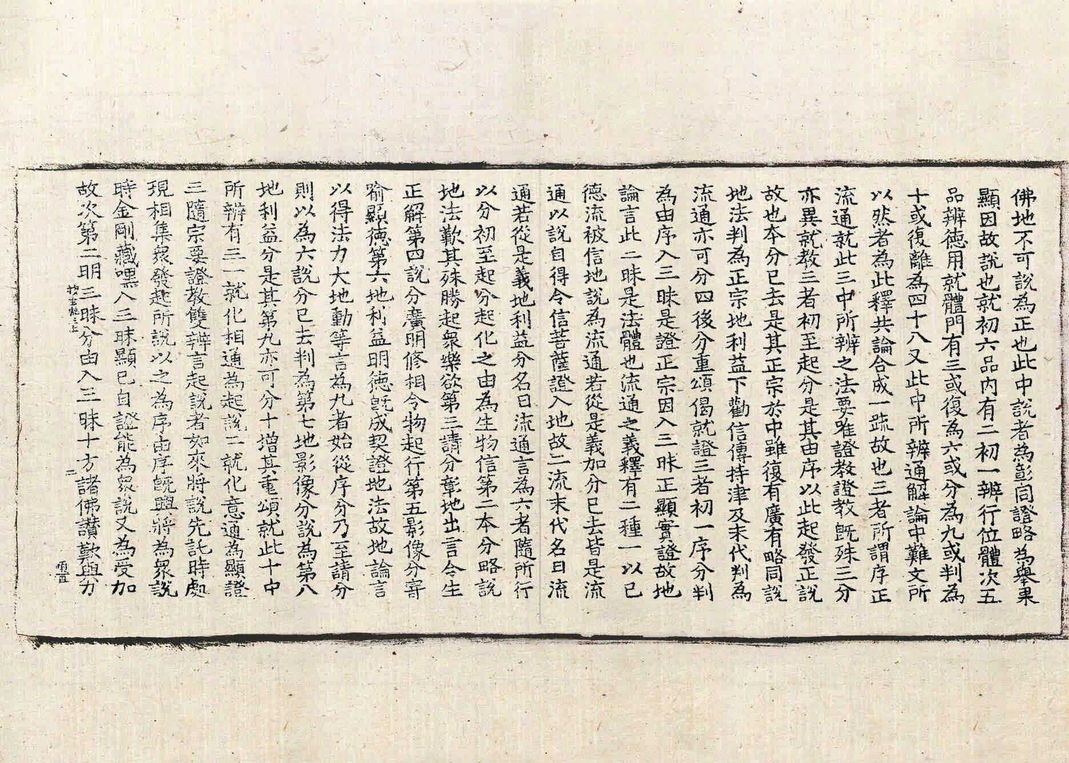 佛地不可說為正也此中說者為彭同證略為舉果
顯因故說也就初六品內有二初一辨行位體次五
品辨德用就體門有三或復為六或分為九或判為
十或復離為四十八又此中所辨通解論中難文所
以然者為此釋共論合成一疏故也三者所謂序正
流通就此三中所辨之法要唯證教證教既殊三分
亦異就教三者初至起分是其由序以此起發正說
故也本分已去是其正宗於中雖復有廣有略同說
地法判為正宗地利益下勸信傳持津及末代判為
流通亦可分四後分重頌偈就證三者初一序分判
為由序入三昧是證正宗因入三昧正顯實證故地
論言此二昧是法體也流通之義釋有二種一以已
德流被信地說為流通若從是義加分已去皆是流
通以說自得令信菩薩證入地故二流末代名曰流
通若從是義地利益分名曰流通言為六者隨所行
以分初至起分起化之由為生物信第二本分略說
地法歎其殊勝起眾樂欲第三請分彰地出言令生
正解第四說分廣明修相令物起行第五影像分寄
喻顯德第六地利益明德既成契證地法故地論言
以得法力大地動等言為九者始從序分乃至請分
則以為六說分已去判為第七地影像分說為第八
地利益分是其第九亦可分十增其重頌就此十中
所辨有三一就化相通為起說二就化意通為顯證
三隨宗要證教雙辨言起說者如來將說先託時處
現相集眾發起所說以之為序由序既興將為眾說
時金剛藏嘿入三昧顯已自證能為眾說又為受加
故次第二明三昧分由入三昧十方諸佛讚歎與力